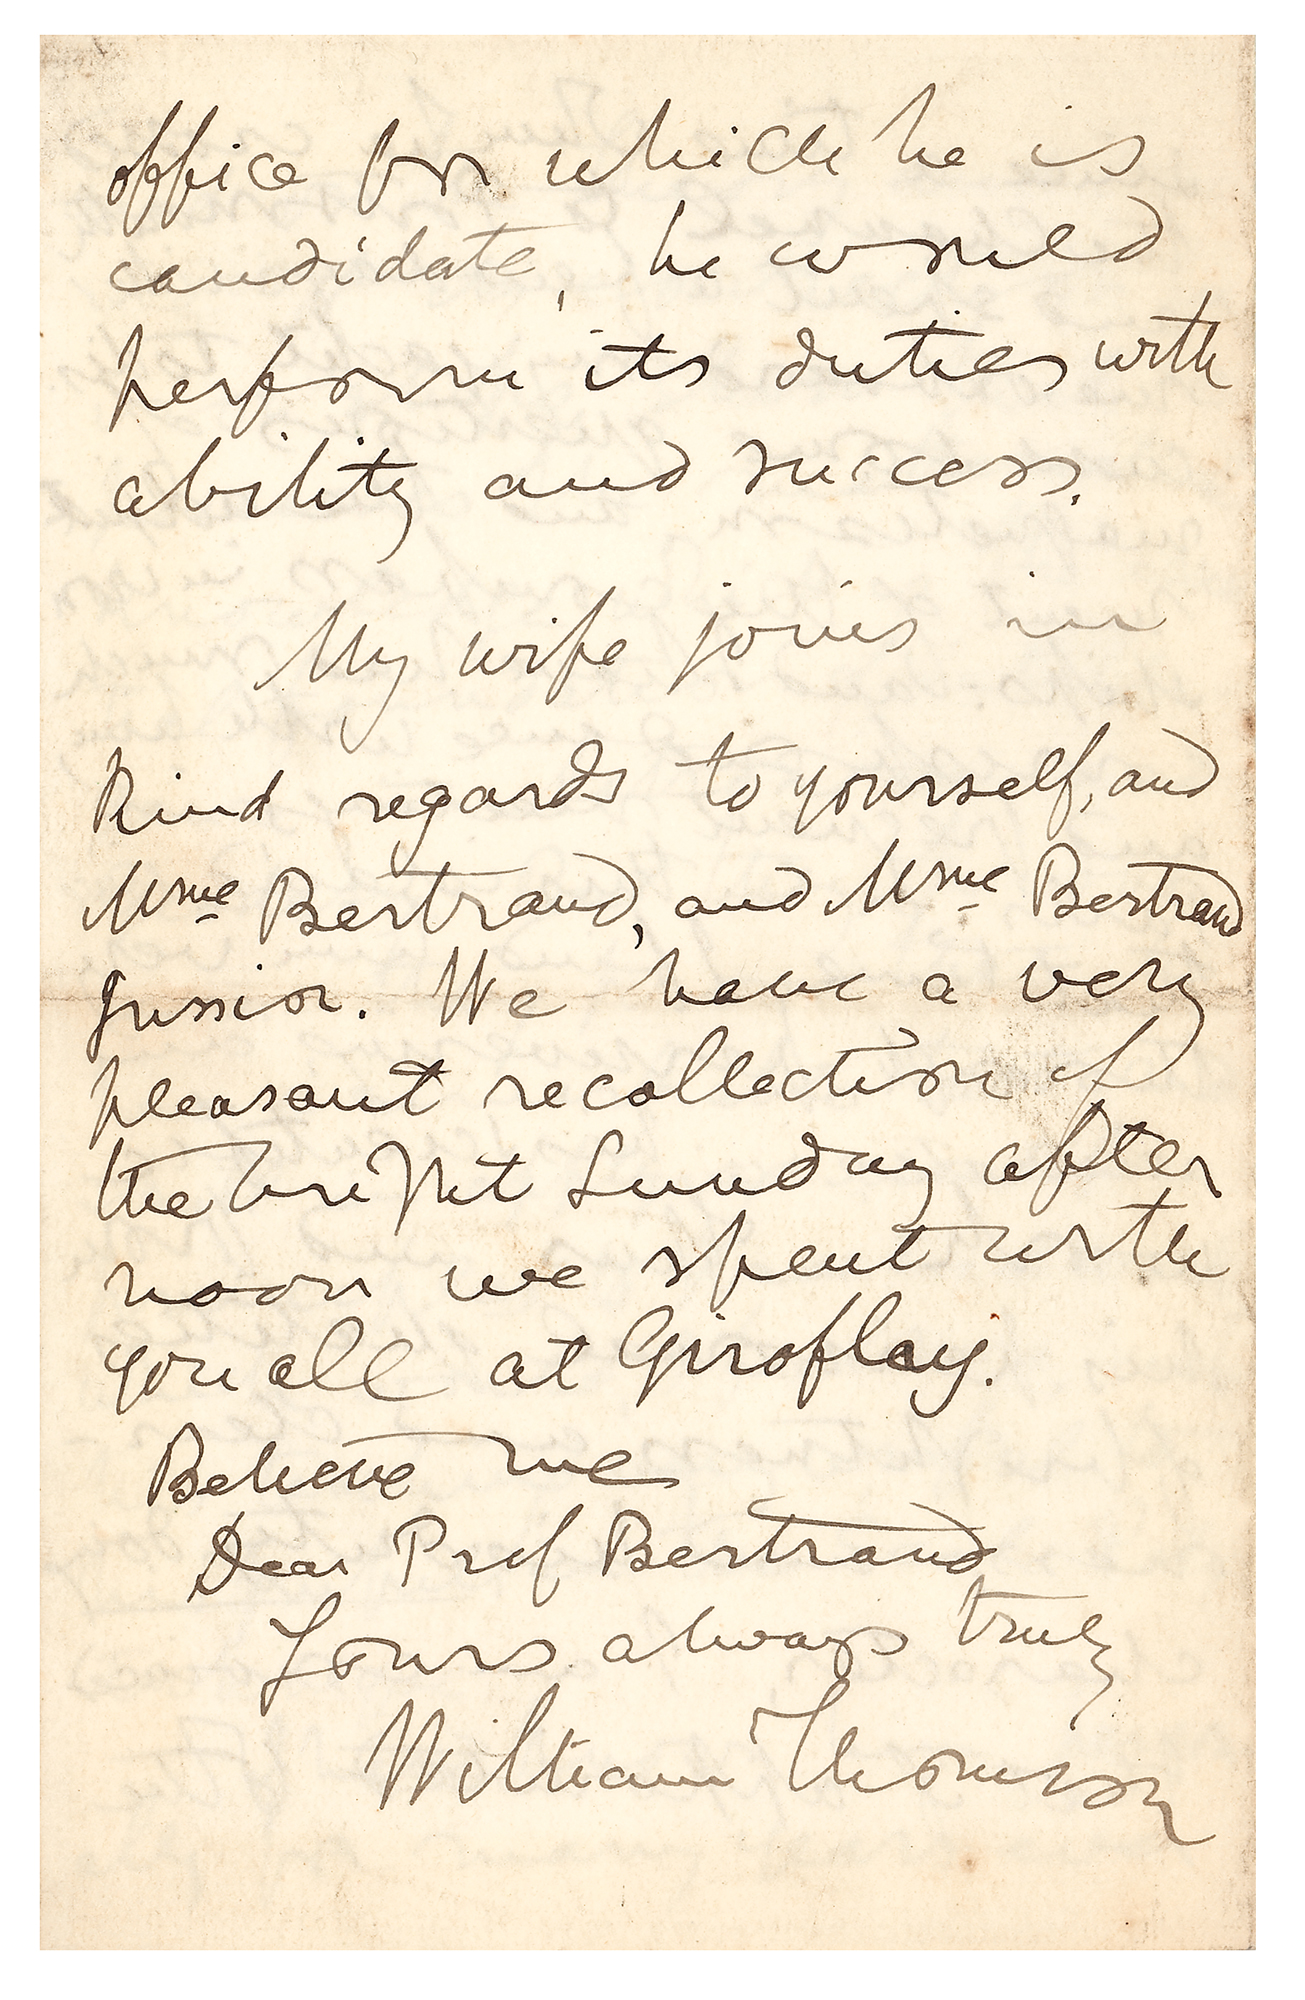 office for which he is
candidate, he would
perform its duties with
ability and success.
My wife joins in
kind regards to yourself, and
Mme Bertrand, and Mme Bertrand
junior. We have a very
pleasant recollection of
the bright Sunday after
noon we spent with
you all at Giroflay.
Believe me
Dear Prof Bertrand
Yours always truly
William Thomson